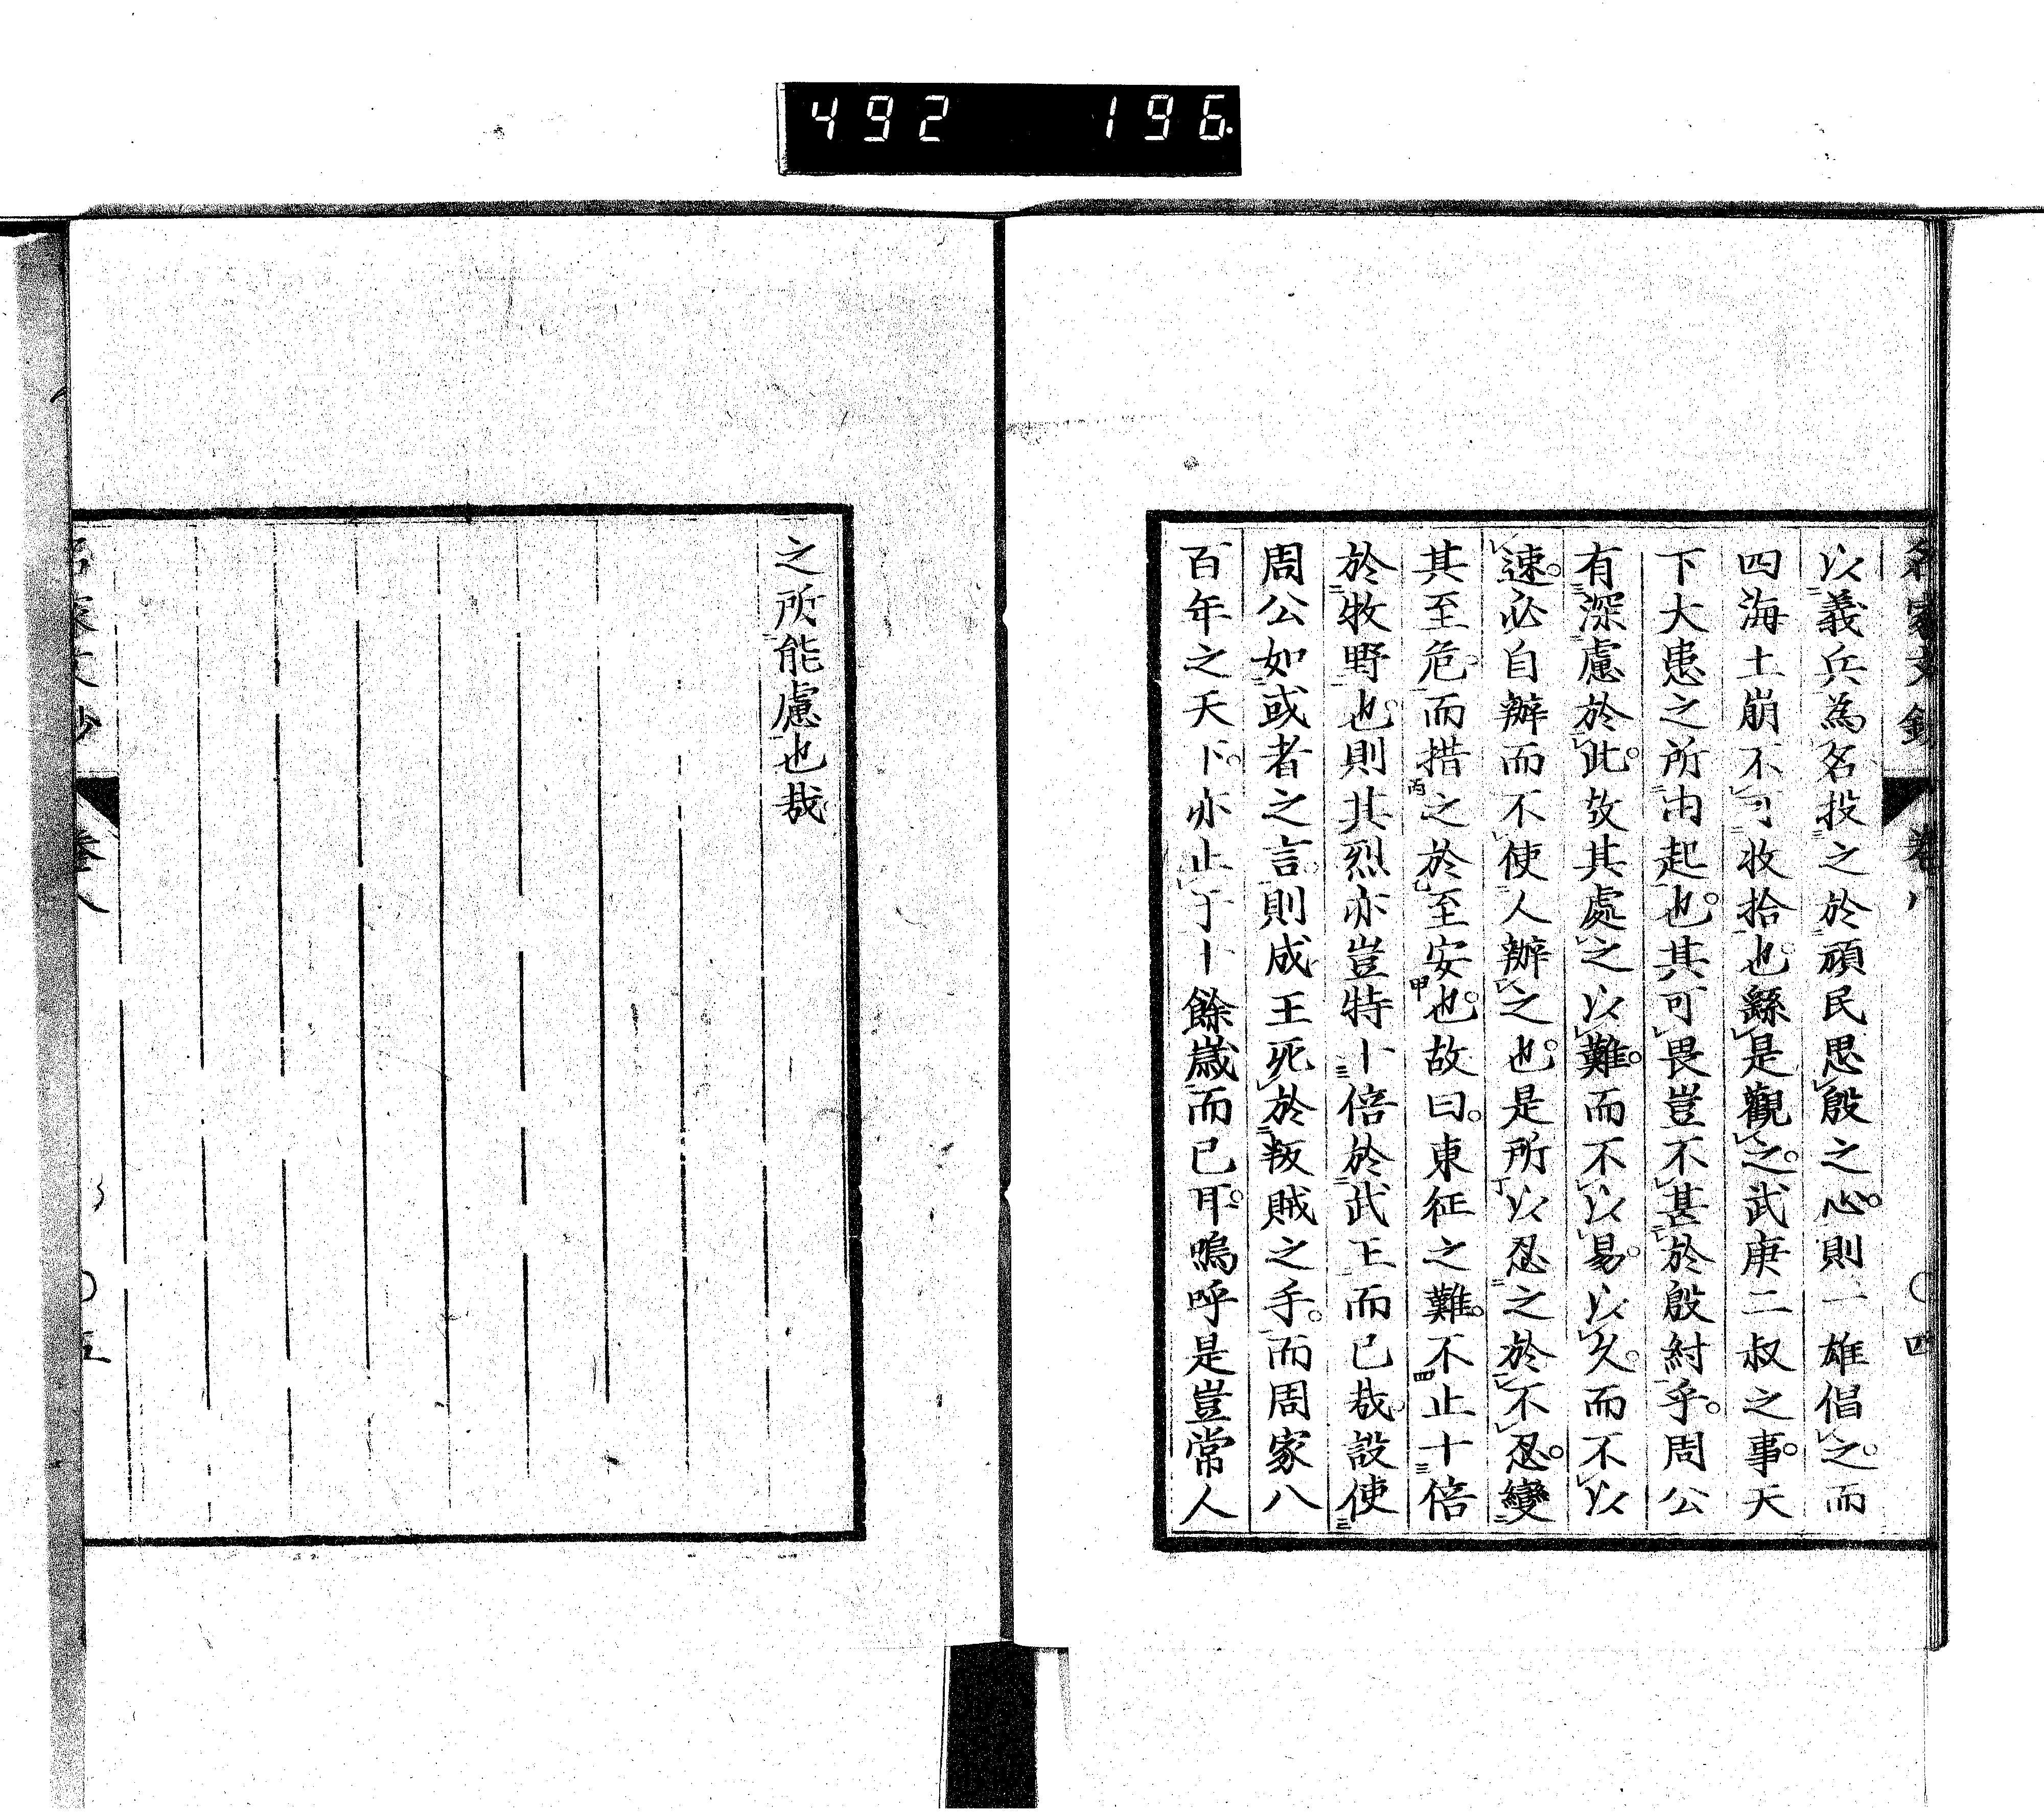 492 196
名家文鈔 卷八 ○四
以義兵為名投之於頑民思殷之心。則一雄倡之。而
四海土崩不可收拾也。繇是觀之。武庚二叔之事。天
下大患之所由起也。其可畏豈不甚於殷紂乎。周公
有深慮於此。故其處之以難。而不以易。以久。而不以
速。必自辦而不使人辦之也。是所以忍之於不忍。變
其至危。而措之於至安也。故曰。東征之難。不止十倍
於牧野也。則其烈亦豈特十倍於武王而已哉。設使
周公如或者之言。則成王死於叛賊之手。而周家八
百年之天下。亦止于十餘歲而已耳。嗚呼是豈常人
之所能慮也哉
名家文鈔 卷八 ○五